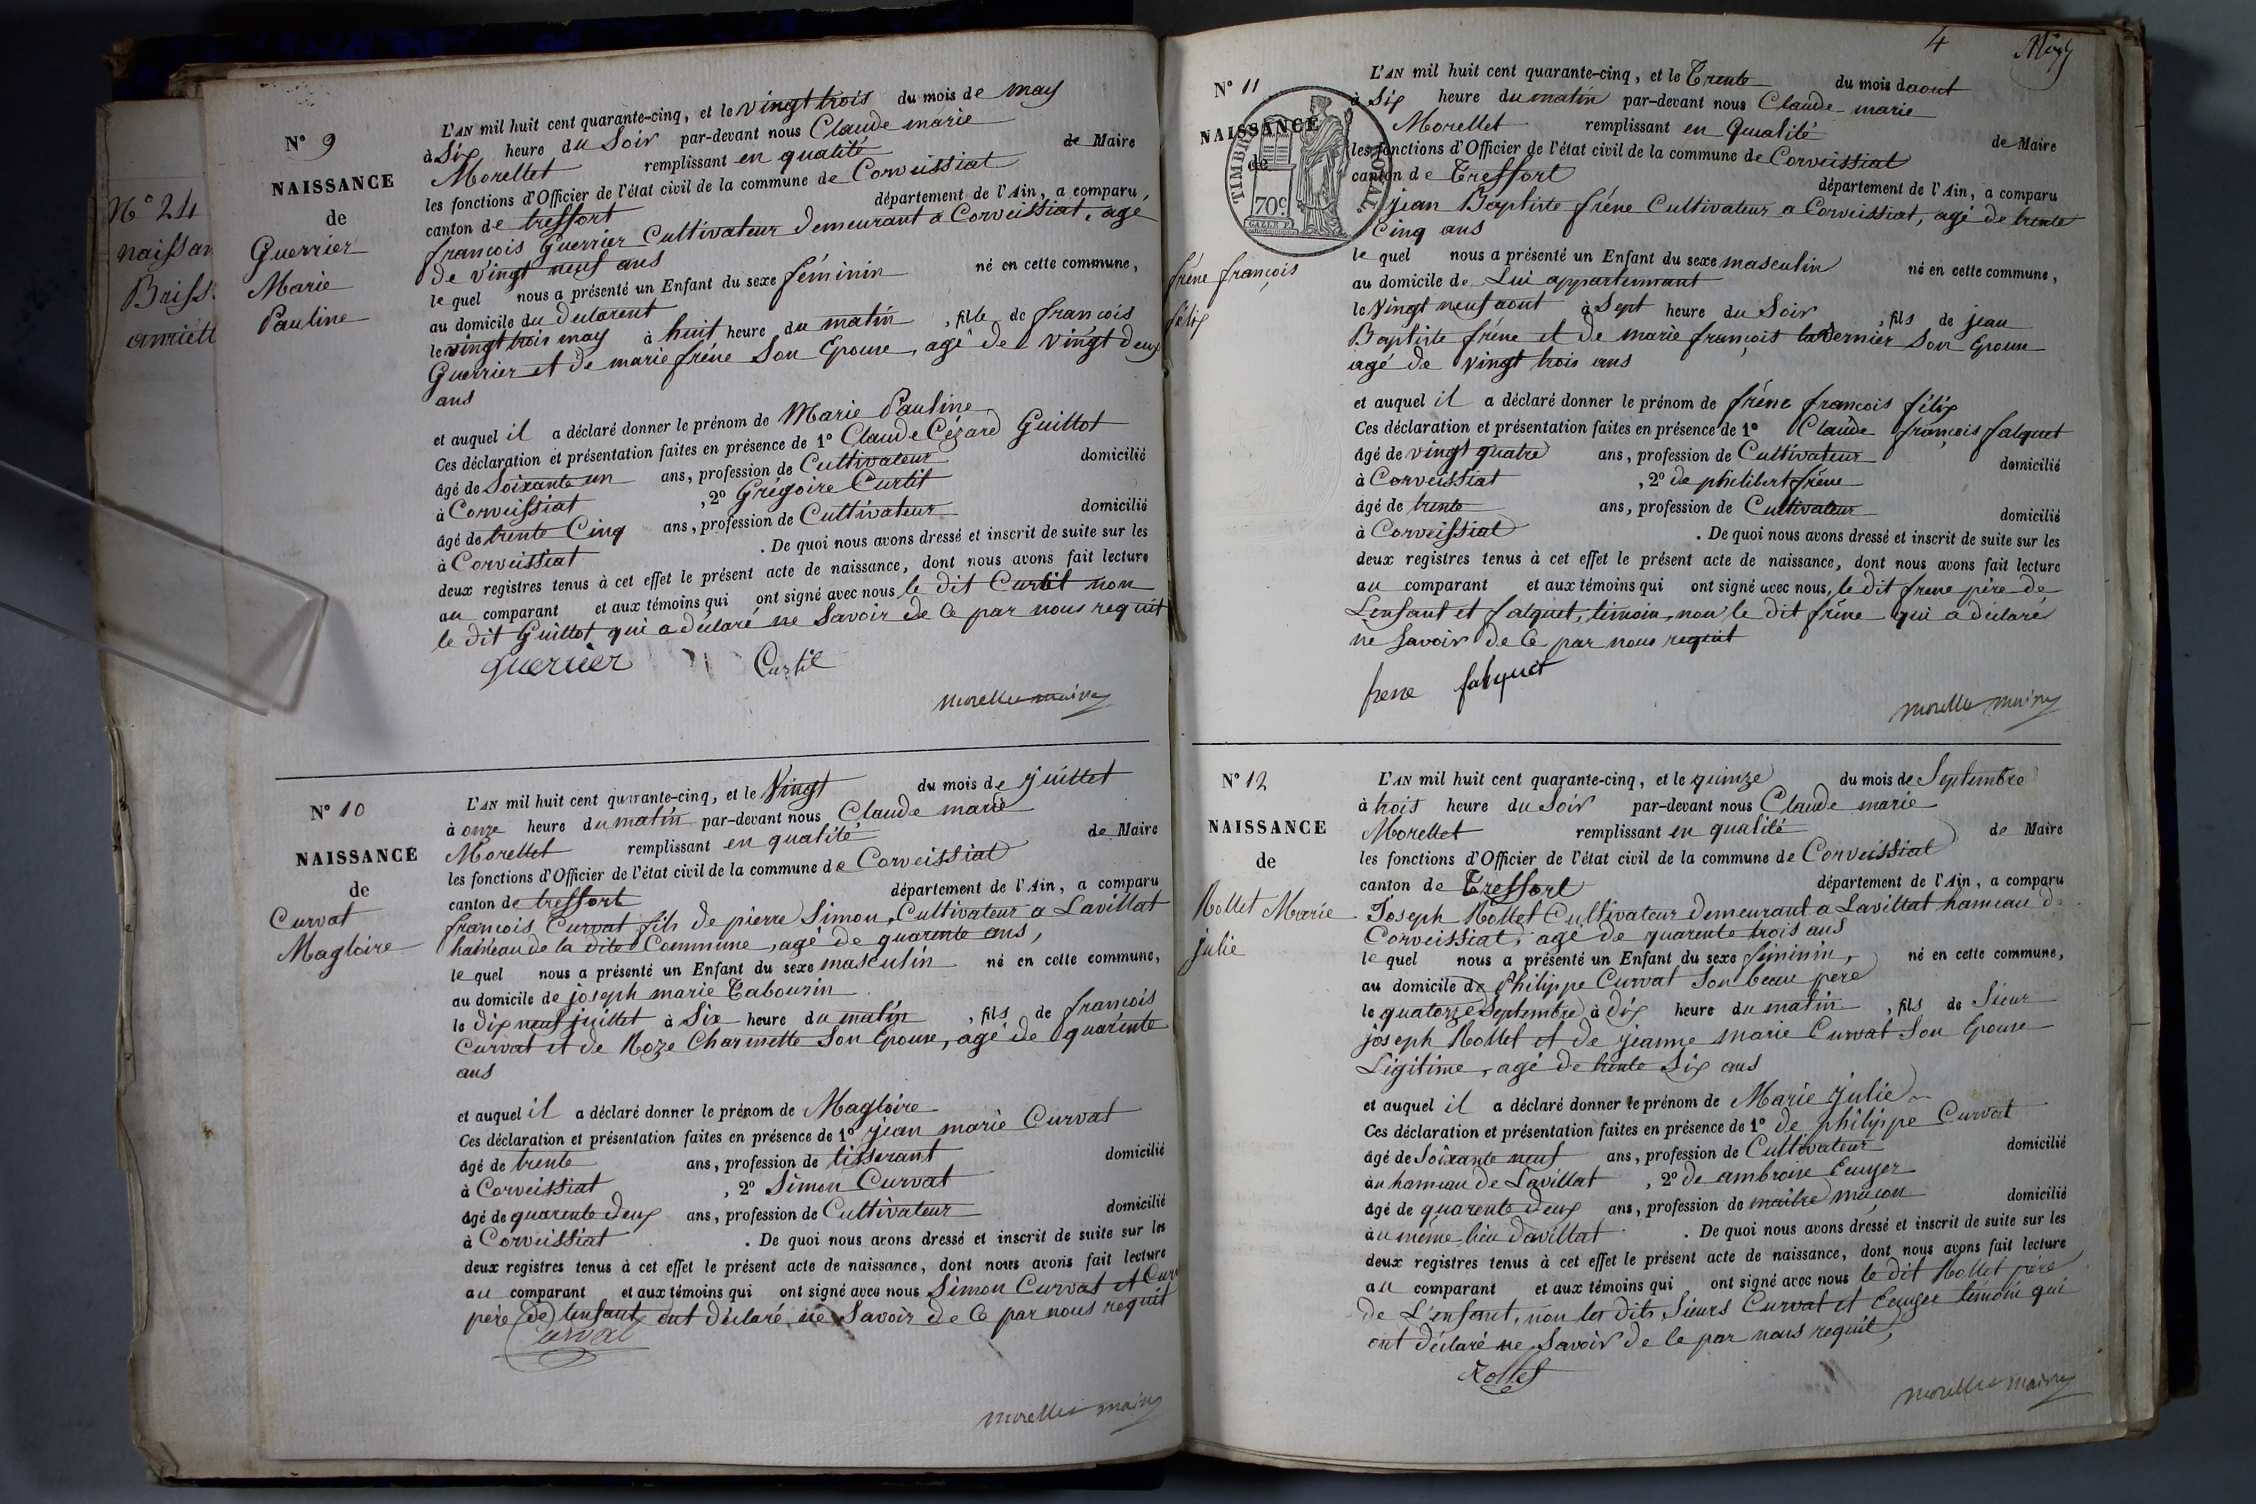 N° 24
naissan
Briss
N° 9
NAISSANCE
de
Guerrier
Marie
Pauline
L'AN mil huit cent quarante-cinq, et le vingt trois du mois de may
à Six heure du Soir par-devant nous Claude marie
Morellet remplissant en qualité de Maire
les fonctions d'Officier de l'état civil de la commune de Corveissiat
canton de treffort département de l'Ain, a comparu
francois Guerrier Cultivateur demeurant a Corveissiat, agé
de vingt neuf ans
le quel nous a présenté un Enfant du sexe féminin né en cette commune,
au domicile du declarent
le vingt trois may à huit heure du matin, fille de francois
Guerrier et de marie fréne Son Epouse, agé de vingt deux
ans
et auquel il a déclaré donner le prénom de Marie Pauline
Ces déclaration et présentation faites en présence de 1° Claude Cézard Guillot
âgé de Soixante un ans, profession de Cultivateur domicilié
à Corveissiat, 2° Grégoire Curtil
âgé de trente Cinq ans, profession de Cultivateur domicilié
à Corveissiat. De quoi nous avons dressé et inscrit de suite sur les
deux registres tenus à cet effet le présent acte de naissance, dont nous avons fait lecture
au comparant et aux témoins qui ont signé avec nous le dit Curtil non
le dit Guillot qui a déclaré ne Savoir de Ce par nous requit
Guerrier Curtil
morellet maire
N° 10
NAISSANCE
de
Curvat
Magloire
L'AN mil huit cent quarante-cinq, et le Vingt du mois de juillet
à onze heure du matin par-devant nous Claude marie
Morellet remplissant en qualité de Maire
les fonctions d'Officier de l'état civil de la commune de Corveissiat
canton de treffort département de l'Ain, a comparu
francois Curvat fils de pierre Simon, Cultivateur a Lavillat
hameau de la dite Commune, agé de quarente ans,
le quel nous a présenté un Enfant du sexe masculin né en cette commune,
au domicile de joseph marie Tabourin
le dix neuf juillet à Six heure du matin, fils de francois
Curvat et de Roze Charmette Son Epouse, agé de quarente
ans
et auquel il a déclaré donner le prénom de Magloire
Ces déclaration et présentation faites en présence de 1° jean marie Curvat
âgé de trente ans, profession de tisserant domicilié
à Corveissiat, 2° Simon Curvat
âgé de quarente deux ans, profession de Cultivateur domicilié
à Corveissiat. De quoi nous avons dressé et inscrit de suite sur les
deux registres tenus à cet effet le présent acte de naissance, dont nous avons fait lecture
au comparant et aux témoins qui ont signé avec nous Simon Curvat et Curv
père de lenfant ont déclaré ne Savoir de Ce par nous requit
Curvat
morellet maire
4
N° 11
NAISSANCE
de
TIMBRE ROYAL
70c
fréne françois
félix
L'AN mil huit cent quarante-cinq, et le Trente du mois daout
à Six heure du matin par-devant nous Claude marie
Morellet remplissant en Qualité de Maire
les fonctions d'Officier de l'état civil de la commune de Corveissiat
canton de Treffort département de l'Ain, a comparu
jean Baptiste fréne Cultivateur a Corveissiat, agé de trente
Cinq ans
le quel nous a présenté un Enfant du sexe masculin né en cette commune,
au domicile de Lui appartennant
le Vingt neuf aout à Sept heure du Soir, fils de jean
Baptiste fréne et de marie françois Son Epouse
agé de vingt trois ans
et auquel il a déclaré donner le prénom de fréne francois félix
Ces déclaration et présentation faites en présence de 1° Claude françois falquet
âgé de vingt quatre ans, profession de Cultivateur domicilié
à Corveissiat, 2° de philibert fréne
âgé de trente ans, profession de Cultivateur domicilié
à Corveissiat. De quoi nous avons dressé et inscrit de suite sur les
deux registres tenus à cet effet le présent acte de naissance, dont nous avons fait lecture
au comparant et aux témoins qui ont signé avec nous, le dit frene père de
Lenfant et falquet, timoin, non le dit fréne qui a déclaré
ne Savoir de Ce par nous requit
frene falquet
morellet maire
N° 12
NAISSANCE
de
Rollet Marie
julie
L'AN mil huit cent quarante-cinq, et le quinze du mois de Septembre
à trois heure du Soir par-devant nous Claude marie
Morellet remplissant en qualité de Maire
les fonctions d'Officier de l'état civil de la commune de Corveissiat
canton de Treffort département de l'Ain, a comparu
Joseph Rollet Cultivateur demeurant a Lavillat hameau de
Corveissiat, agé de quarente trois ans
le quel nous a présenté un Enfant du sexe féminin, né en cette commune,
au domicile de Philippe Curvat Son beau père
le quatorze Septembre à dix heure du matin, fils de Sieur
joseph Rollet et de jeanne marie Curvat Son Epouse
Légitime, agé de trente Six ans
et auquel il a déclaré donner le prénom de Marie julie
Ces déclaration et présentation faites en présence de 1° de philippe Curvat
âgé de Soixante neuf ans, profession de Cultivateur domicilié
àu hameau de Lavillat, 2° de ambroise Ecuyer
âgé de quarente deux ans, profession de maître maçon domicilié
àu même lieu davillat. De quoi nous avons dressé et inscrit de suite sur les
deux registres tenus à cet effet le présent acte de naissance, dont nous avons fait lecture
au comparant et aux témoins qui ont signé avec nous le dit Rollet père
de L'enfant, non les dits Sieurs Curvat et Ecuyer timoin qui
ont déclaré ne Savoir de Ce par nous requit,
Rollet
morellet maire